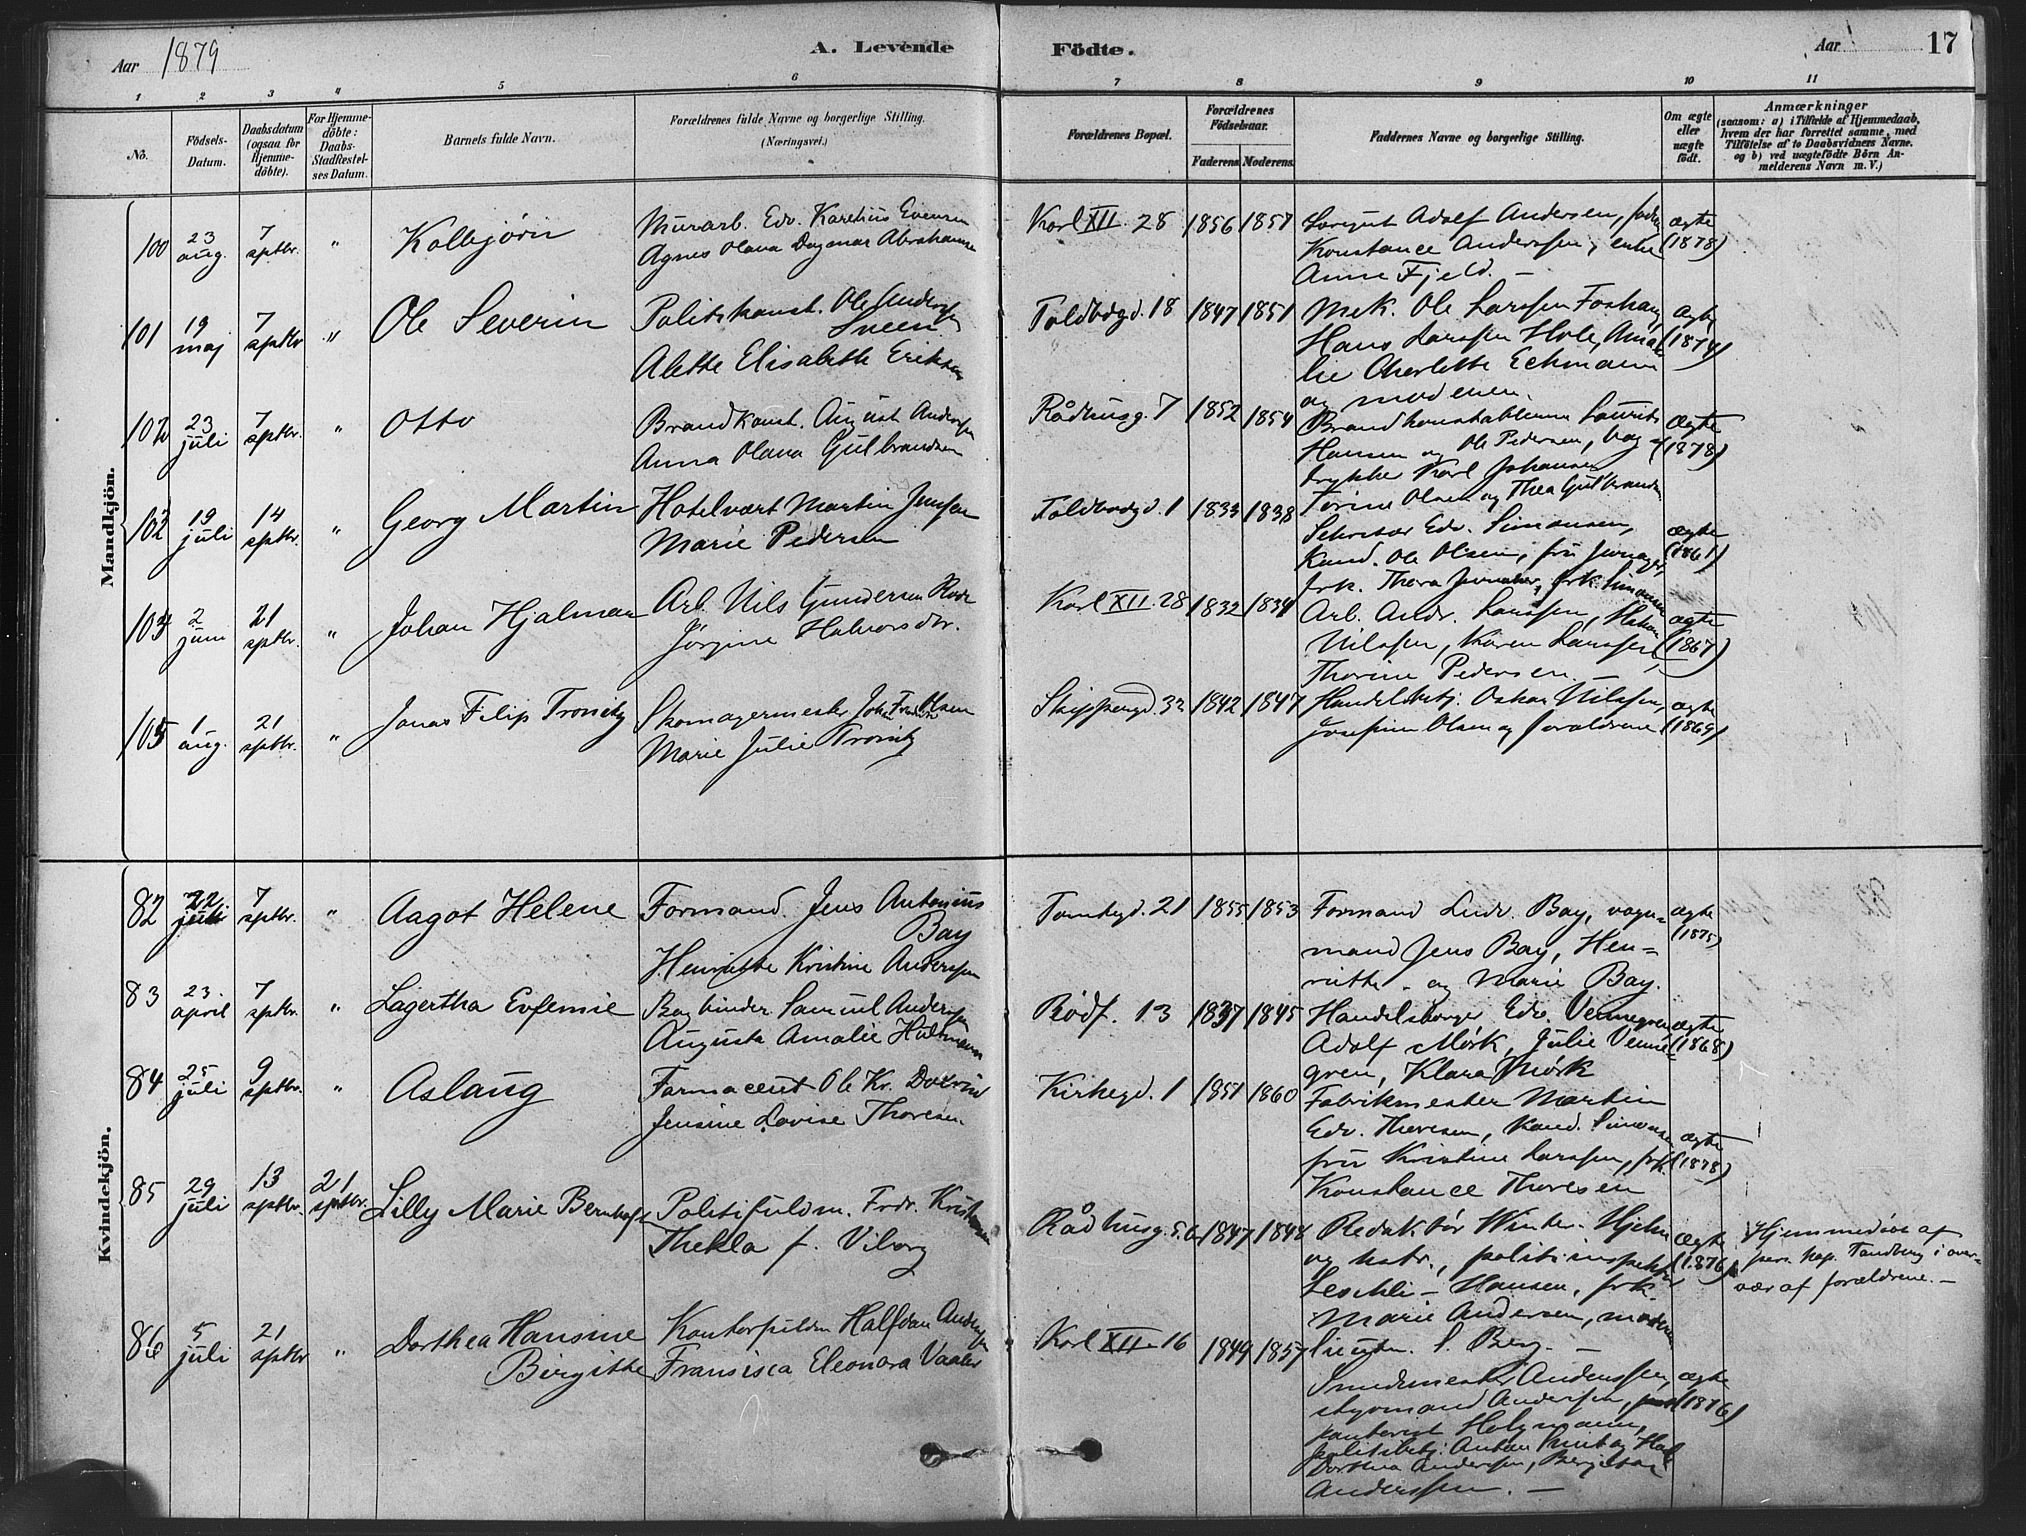 Aar 1879
A. Levende Födte.
Aar
17
1 2 3 4 5 6 7 8 9 10 11
No.
Födsels-Datum.
Daabsdatum (ogsaa for Hjemme-döbte).
For Hjemme-döbte: Daabs-Stadfæstel-ses Datum.
Barnets fulde Navn.
Forældrenes fulde Navne og borgerlige Stilling.
(Næringsvei.)
Forældrenes Bopæl.
Forældrenes Födselsaar.
Faderens. Moderens.
Faddernes Navne og borgerlige Stilling.
Om ægte eller uægte födt.
Anmærkninger
(saasom: a) i Tilfælde af Hjemmedaab,
hvem der har forrettet samme, med
Tilföielse af to Daabsvidners Navne.
og b) ved uægtefödte Börn An-
melderens Navn m. V.)
Mandkjön.
100 23 aug. 7 sptbr. " Kolbjørn
Murarb. Edv. Karelius Evensen
Agnes Olava Dagmar Abrahamsen
Karl XII. 28 1856 1857
Adolf Andersen,
Konstance Anderssen, enke
Anne Fjeld. —
ægte (1878)
101 19 maj 7 sptbr " Ole Severin
Politikonst. Ole Andersen
Sveen
Alette Elisabeth Eriksen
Toldbodgd. 18 1847 1851
Mek. Ole Larssen Foshaug,
Hans Larssen Hole, Ama-
lie Charlotte Eckmann
og moderen.
ægte (1874)
102 23 juli 7 sptbr. " Otto
Brandkonst. August Andersen
Anna Olava Gulbrandsen
Rådhusg. 7 1852 1854
Brandkonstablerne Laurits
Hansen og Ole Pedersen, bog-
trykker Karl Johansen
Torine Olsen og Thea Gulbrandsen
ægte (1878)
19 juli 14 sptbr. " Georg Martin
Hotelvært Martin Jensen
Marie Pedersen
Toldbodgd. 1 1833 1838
Sekretær Edv. Simonsen,
Kand. Ole Olsen, fru
frk. Thora frk. Simonsen
ægte (1861)
2 juni 21 sptbr. " Johan Hjalmar
Arb. Nils Gundersen
Jørgine Halvorsdr.
Karl XII. 28 1832 1834
Arb. Andr. Larssen,
Nilssen, Karen Larssen,
Thorine Pedersen —
ægte (1867)
105 1 aug. 21 sptbr. " Jonas Filip Tronsby
Skomagermester Joh. Fredrik Olsen
Marie Julie Tronsby
Skippergd. 32 1842 1847
Handelsbetj. Oskar Nilssen,
Josefine Olsen og forældrene
ægte (1869)
Kvindekjön.
82 22 juli 7 sptbr. " Aagot Helene
Formand. Jens Antonius
Bay
Henriette Kristine Anderssen
Tomtegd. 21 1855 1853
Formand Ludv. Bay, vogn-
mand Jens Bay, Hen-
riette og Marie Bay.
ægte (1875)
83 23 april 7 sptbr. " Lagertha Evfemie
Bogbinder Samuel Anderssen
Augusta Amalie Holtmann
Rødf. 13 1837 1845
Handelsborger Edv. Vennegren
Adolf Mørk, Julie Venne-
gren, Klara Mørk
ægte (1868)
84 25 juli 9 sptbr. " Aslaug
Farmaceut Ole Kr.
Jensine Lovise Thoresen
Kirkegd. 1 1851 1860
Fabrikmester Martin
Edv. Thoresen, Kand. Simonsen
fru Kristine Larssen, frk.
Konstance Thoresen
ægte (1878)
85 29 juli 13 sptbr. 21 sptbr. Lilly Marie Bernhoft
Politifuldm. Fredr. Kristensen
Thekla f. Viborg
Rådhusg. 5.6 1847 1848
Redaktør Winter-Hjelm
og hstr., politiinspektør
Hansen, frk.
Marie Andersen, moderen
Lieutn. S. Berg. —
ægte (1876)
Hjemmedøbt af
pers. kap. Tandberg i over-
vær af forældrene. —
86 5 juli 21 sptbr " Dorthea Hansine
Birgitte
Kontorfuldm Halfdan Anderssen
Fransisca Eleonora Vaaler
Karl XII 16 1849 1857
Smedmester Anderssen,
styrmand Anderssen,
kontorist Holzmann,
politibetj. Anton
Dorthea Anderssen,
Anderssen. —
ægte (1876)